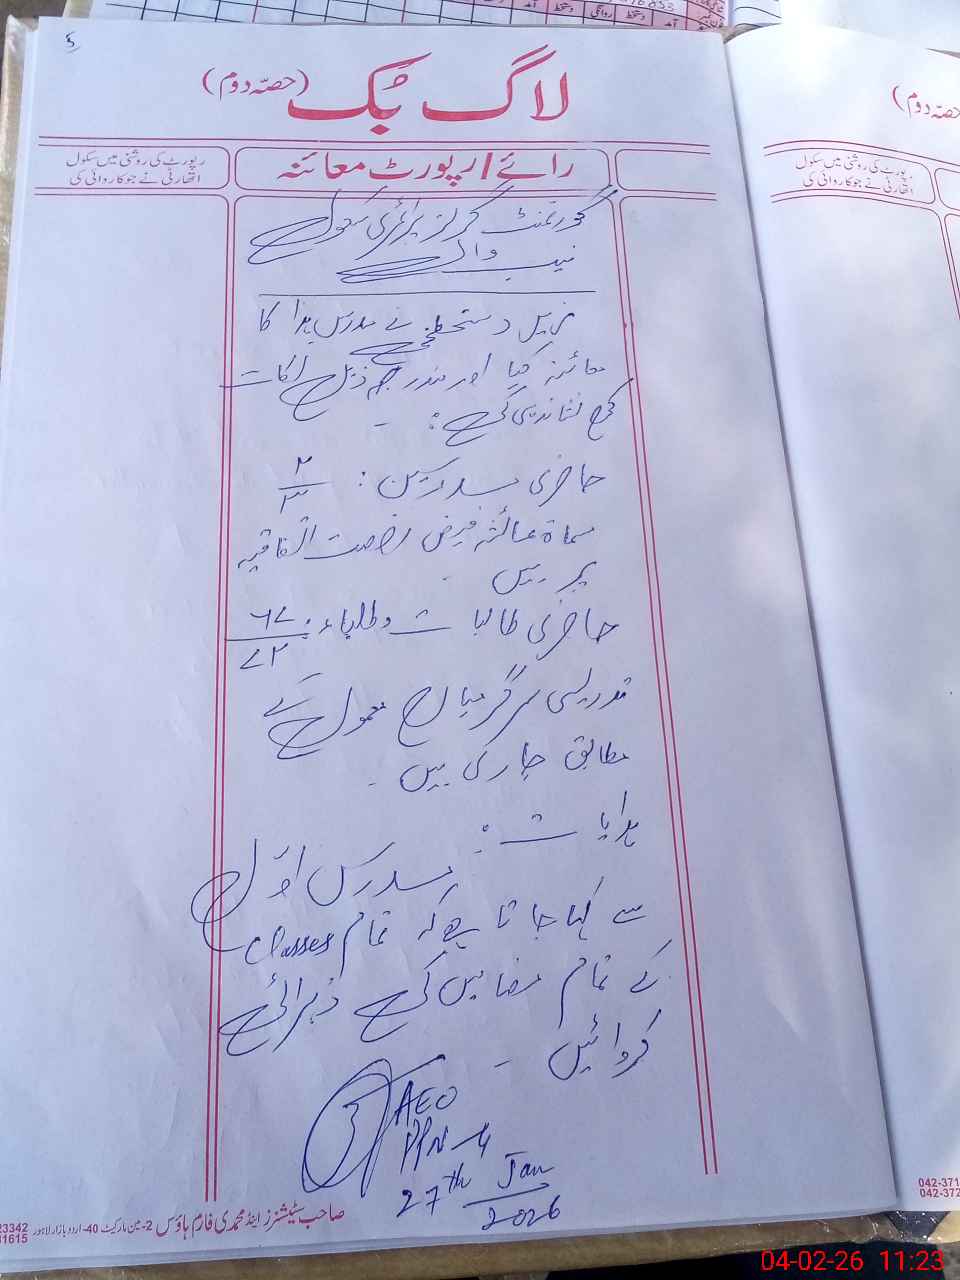 لاگ بُک (حصّہ دوم)
رپورٹ کی روشنی میں سکول
اتھارٹی نے جو کاروائی کی
رائے/رپورٹ معائنہ
گورنمنٹ گرلز پرائمری سکول
نیب والی
زیر دستخطی نے مدرس ہذا کا
معائنہ کیا اور مندرجہ ذیل نکات
کی نشاندہی کی :-
حاضری مدرسین : ۲/۳
مسماۃ عائشہ فیض رخصت اتفاقیہ
پر ہیں
حاضری طالبات و طلباء : ۶۷/۷۲
تدریسی سرگرمیاں معمول کے
مطابق جاری ہیں ۔
ہدایات :
مدرس اوّل
سے کہا جاتا ہے کہ تمام classes
کے تمام مضامین کی دہرائی
کروائیں ۔
AEO
PPN-4
27th Jan
2026
صاحب سٹیشنرز اینڈ محمدی فارم ہاؤس 2-مین مارکیٹ 40-اردو بازار لاہور
23342
11615
حصّہ دوم)
رپورٹ کی روشنی میں سکول
اتھارٹی نے جو کاروائی کی
042-371
042-372
04-02-26 11:23